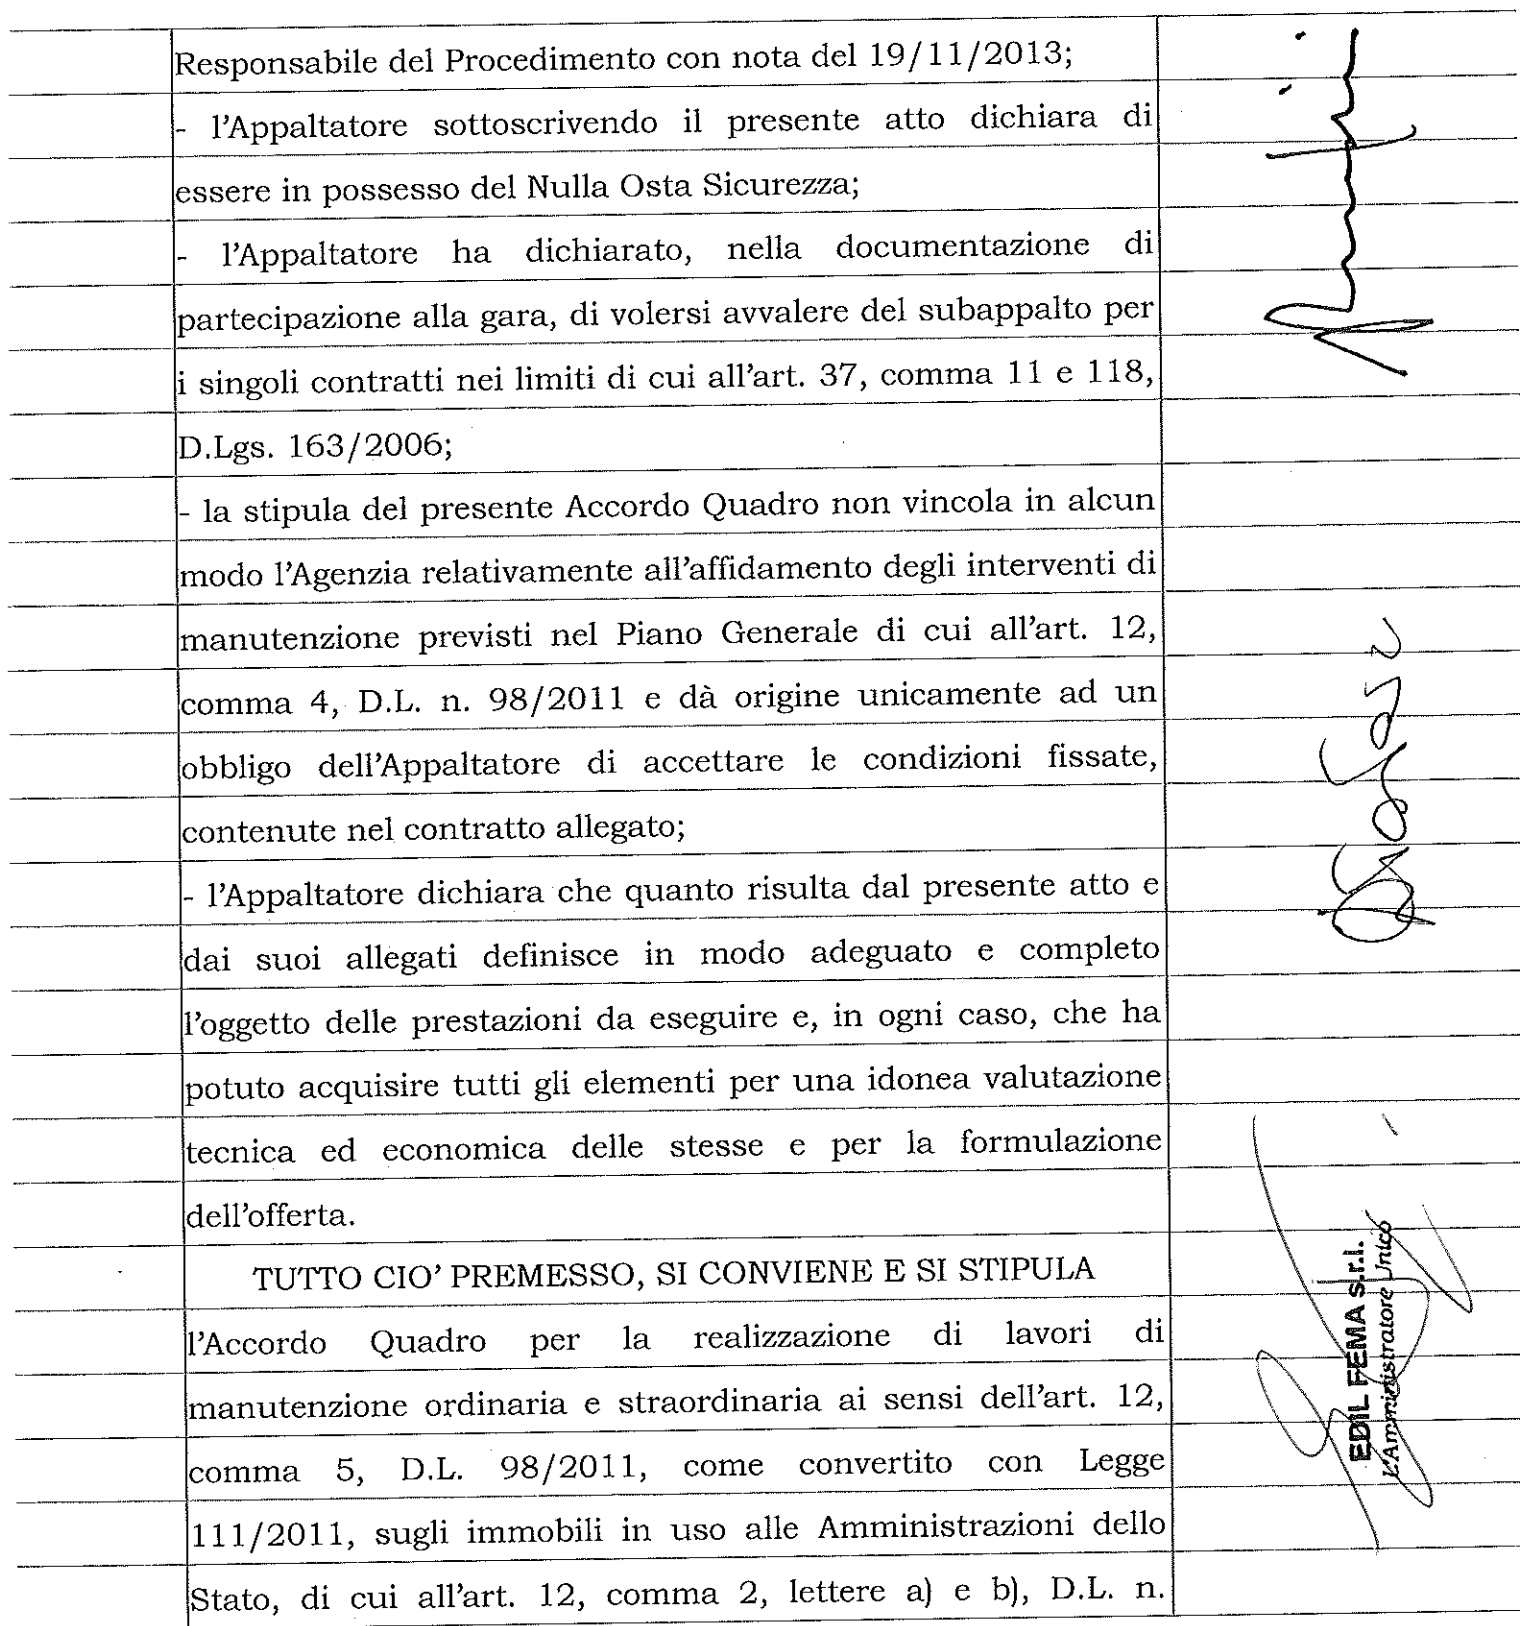 Responsabile del Procedimento con nota del 19/11/2013;
- l'Appaltatore sottoscrivendo il presente atto dichiara di
essere in possesso del Nulla Osta Sicurezza;
- l'Appaltatore ha dichiarato, nella documentazione di
partecipazione alla gara, di volersi avvalere del subappalto per
i singoli contratti nei limiti di cui all'art. 37, comma 11 e 118,
D.Lgs. 163/2006;
- la stipula del presente Accordo Quadro non vincola in alcun
modo l'Agenzia relativamente all'affidamento degli interventi di
manutenzione previsti nel Piano Generale di cui all'art. 12,
comma 4, D.L. n. 98/2011 e dà origine unicamente ad un
obbligo dell'Appaltatore di accettare le condizioni fissate,
contenute nel contratto allegato;
- l'Appaltatore dichiara che quanto risulta dal presente atto e
dai suoi allegati definisce in modo adeguato e completo
l'oggetto delle prestazioni da eseguire e, in ogni caso, che ha
potuto acquisire tutti gli elementi per una idonea valutazione
tecnica ed economica delle stesse e per la formulazione
dell'offerta.
TUTTO CIO' PREMESSO, SI CONVIENE E SI STIPULA
l'Accordo Quadro per la realizzazione di lavori di
manutenzione ordinaria e straordinaria ai sensi dell'art. 12,
comma 5, D.L. 98/2011, come convertito con Legge
111/2011, sugli immobili in uso alle Amministrazioni dello
Stato, di cui all'art. 12, comma 2, lettere a) e b), D.L. n.
EDIL FEMA s.r.l.
L'Amministratore Unico